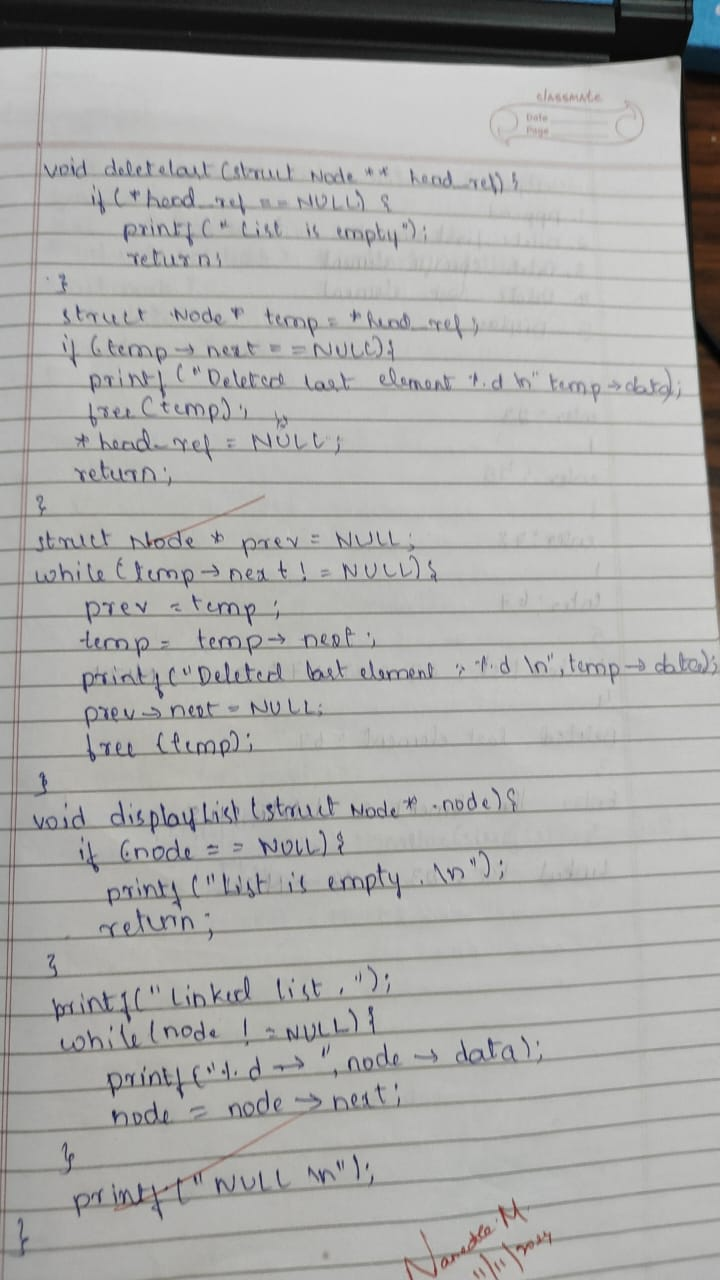 classmate
Date
Page
void deletelast (struct Node ** head_ref) {
if (*head_ref == NULL) {
printf (" List is empty");
return;
}
struct Node* temp = *head_ref;
if (temp → next == NULL) {
printf ("Deleted last element %d \n" temp → data);
free (temp);
* head_ref = NULL;
return;
}
struct Node * prev = NULL;
while (temp → next != NULL) {
prev = temp;
temp = temp → next;
printf ("Deleted last element : %d \n", temp → data);
prev → next = NULL;
free (temp);
}
void displayList (struct Node* node) {
if (node == NULL) {
printf ("List is empty. \n");
return;
}
printf ("Linked list, ");
while (node != NULL) {
printf ("%d → ", node → data);
node = node → next;
}
printf (" NULL \n");
}
11/11/2024